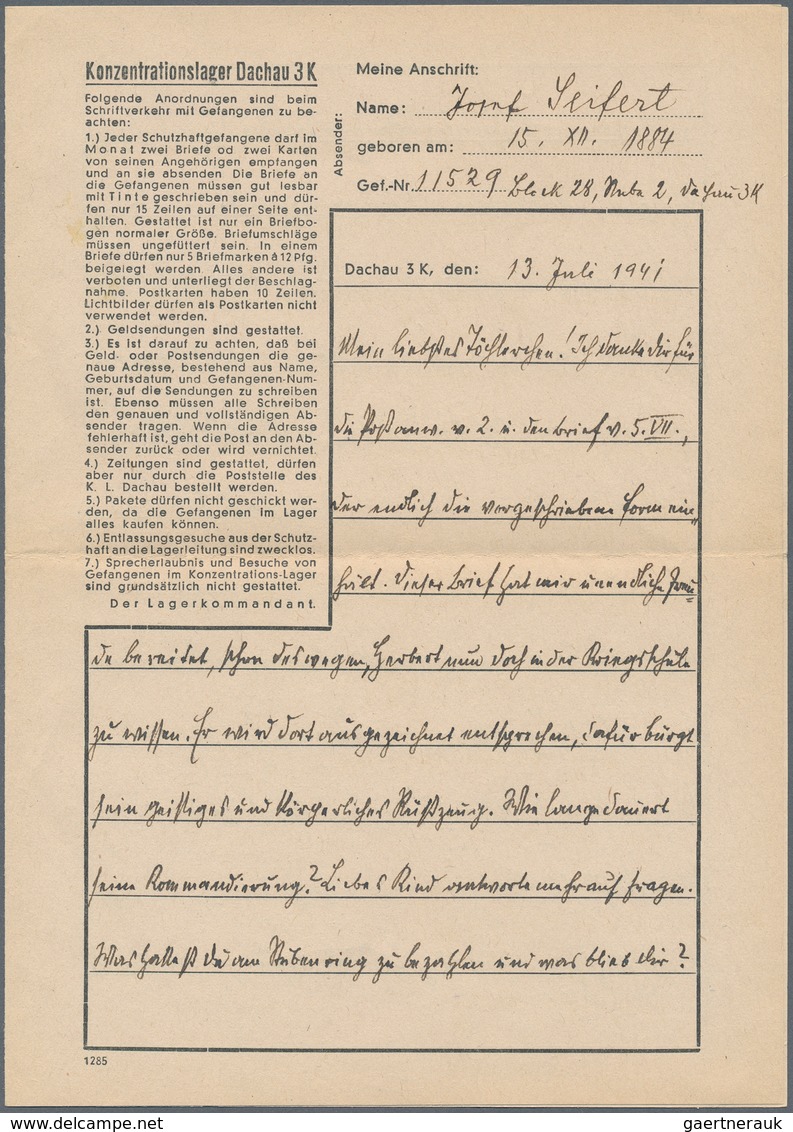 Konzentrationslager Dachau 3 K
Folgende Anordnungen sind beim
Schriftverkehr mit Gefangenen zu be-
achten:
1.) Jeder Schutzhaftgefangene darf im
Monat zwei Briefe od zwei Karten
von seinen Angehörigen empfangen
und an sie absenden Die Briefe an
die Gefangenen müssen gut lesbar
mit Tinte geschrieben sein und dür-
fen nur 15 Zeilen auf einer Seite ent-
halten. Gestattet ist nur ein Briefbo-
gen normaler Größe. Briefumschläge
müssen ungefüttert sein. In einem
Briefe dürfen nur 5 Briefmarken à 12 Pfg.
beigelegt werden. Alles andere ist
verboten und unterliegt der Beschlag-
nahme. Postkarten haben 10 Zeilen.
Lichtbilder dürfen als Postkarten nicht
verwendet werden.
2.) Geldsendungen sind gestattet.
3.) Es ist darauf zu achten, daß bei
Geld- oder Postsendungen die ge-
naue Adresse, bestehend aus Name,
Geburtsdatum und Gefangenen-Num-
mer, auf die Sendungen zu schreiben
ist. Ebenso müssen alle Schreiben
den genauen und vollständigen Ab-
sender tragen. Wenn die Adresse
fehlerhaft ist, geht die Post an den Ab-
sender zurück oder wird vernichtet.
4.) Zeitungen sind gestattet, dürfen
aber nur durch die Poststelle des
K. L. Dachau bestellt werden.
5.) Pakete dürfen nicht geschickt wer-
den, da die Gefangenen im Lager
alles kaufen können.
6.) Entlassungsgesuche aus der Schutz-
haft an die Lagerleitung sind zwecklos.
7.) Sprecherlaubnis und Besuche von
Gefangenen im Konzentrations-Lager
sind grundsätzlich nicht gestattet.
Der Lagerkommandant.
Absender:
Meine Anschrift:
Name: Josef Seifert
geboren am: 15. XII. 1884
Gef.-Nr. 11529 Block 28, Stube 2, Dachau 3K
Dachau 3 K, den: 13. Juli 1941
Mein liebstes Töchterchen! Ich danke dir für
die Postanw. v. 2. u. den Brief v. 5. VII.,
der endlich die vorgeschriebene Form ein-
hält. Dieser Brief hat mir unendliche Freu-
de bereitet, schon deswegen, Herbert nun doch in der Kriegsschule
zu wissen. Er wird dort ausgezeichnet entsprechen, dafür bürgt
sein geistiges und körperliches Rüstzeug. Wie lange dauert
seine Kommandierung? Liebes Kind antworte mehr auf Fragen.
Was hattest du am Stubenring zu bezahlen und was blieb dir?
1285
gaertnerauk